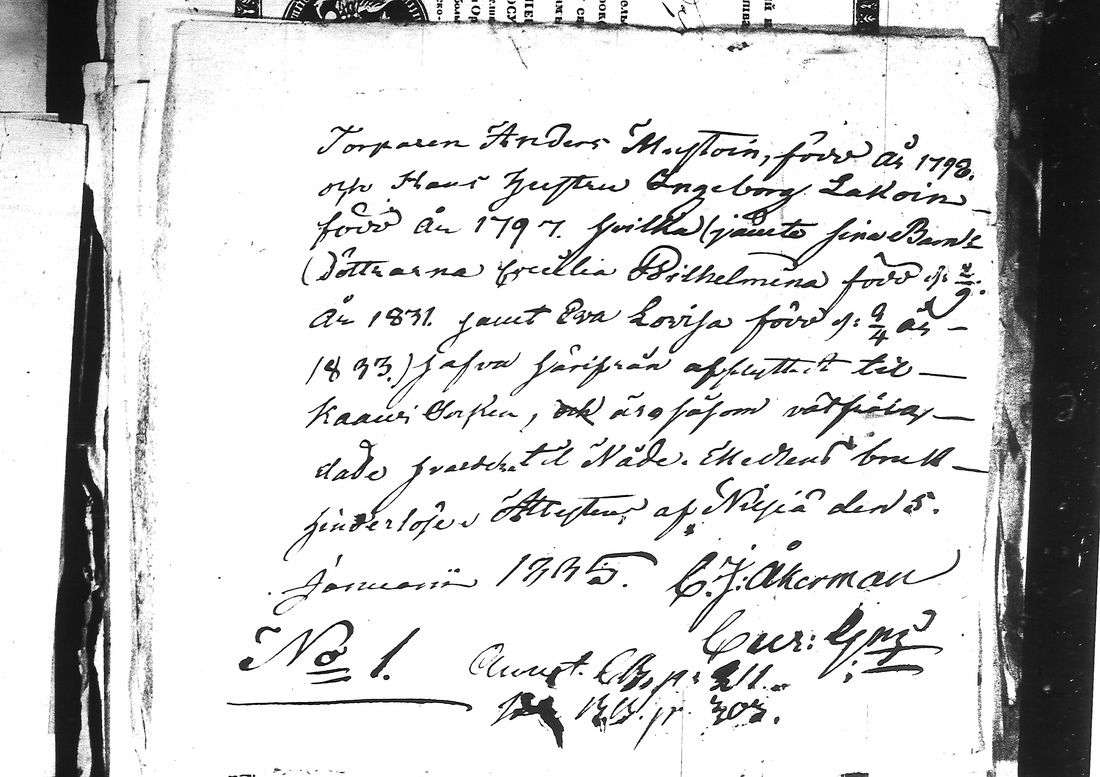 Torparen Anders Mustoin, född År 1798.
och Hans Hustru Ingeborg Lakoin
född År 1797. hvilka (jämte sina Barn
Döttrarna Cecilia Wilhelmina född d: 2/9.
År 1831. samt Eva Lovisa född d: 9/4 år
1833.) hafva härifrån afflyttat til
Kaawi Sokn, och äro såsom väl
dade til Nåde. Medlens bruk
hinderlöse Attesteras af Nilsiä den 5.
Januarii 1835. C. J. Åkerman
No 1. Cur:
Annot. p: 311.
p. 303.